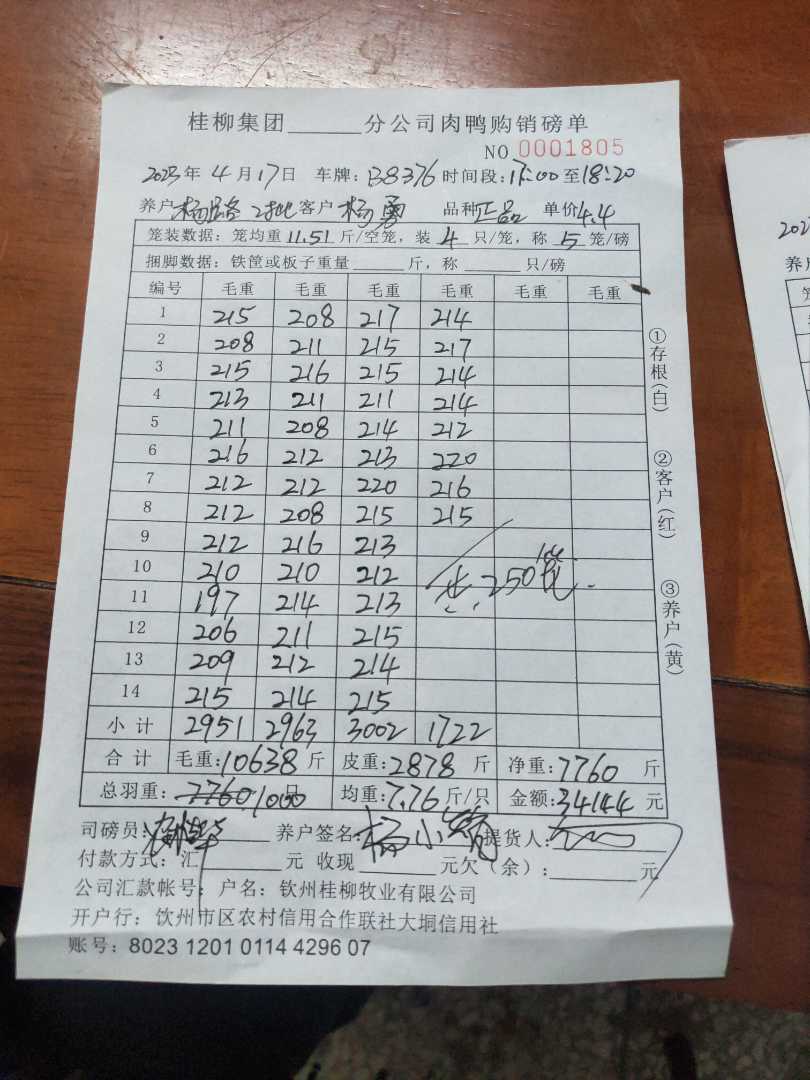 桂柳集团______分公司肉鸭购销磅单
NO 0001805
2023年 4 月 17日 车牌: B8376 时间段: 17:00 至 18:20
养户 杨 客户 杨勇 品种 正品 单价 4.4
笼装数据: 笼均重 11.51 斤/空笼, 装 4 只/笼, 称 5 笼/磅
捆脚数据: 铁筐或板子重量______斤, 称______只/磅
编号 毛重 毛重 毛重 毛重 毛重 毛重
1 215 208 217 214
2 208 211 215 217
3 215 216 215 214
4 213 211 211 214
5 211 208 214 212
6 216 212 213 220
7 212 212 220 216
8 212 208 215 215
9 212 216 213
10 210 210 212 250
11 197 214 213
12 206 211 215
13 209 212 214
14 215 214 215
小计 2951 2963 3002 1722
合计 毛重: 10638 斤 皮重: 2878 斤 净重: 7760 斤
总羽重: 7760 1000 只 均重: 7.76 斤/只 金额: 34144 元
司磅员: 养户签名: 杨小 提货人:
付款方式: 汇______元 收现______元欠(余):______元
公司汇款帐号: 户名: 钦州桂柳牧业有限公司
开户行: 饮州市区农村信用合作联社大垌信用社
账号: 8023 1201 0114 4296 07
①存根(白)
②客户(红)
③养户(黄)
202
养户